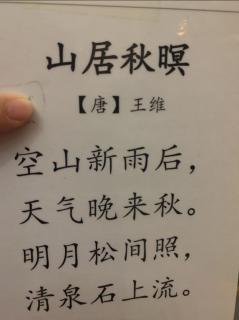 山居秋暝
【唐】王维
空山新雨后，
天气晚来秋。
明月松间照，
清泉石上流。